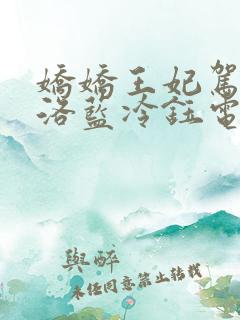 嬌嬌王妃駕
洛藍冷鈺電
與醉
未任同意禁止轉載